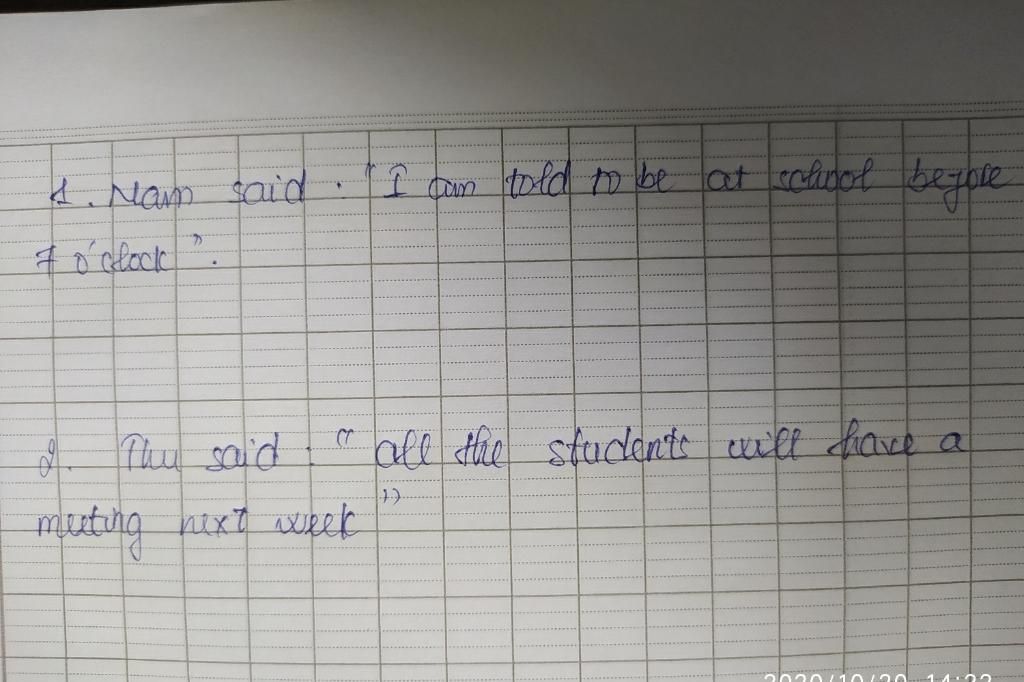 1. Nam said : "I am told to be at school before
7 o'clock".
2. Thu said : "all the students will have a
meeting next week"
2020/10/20 14:22